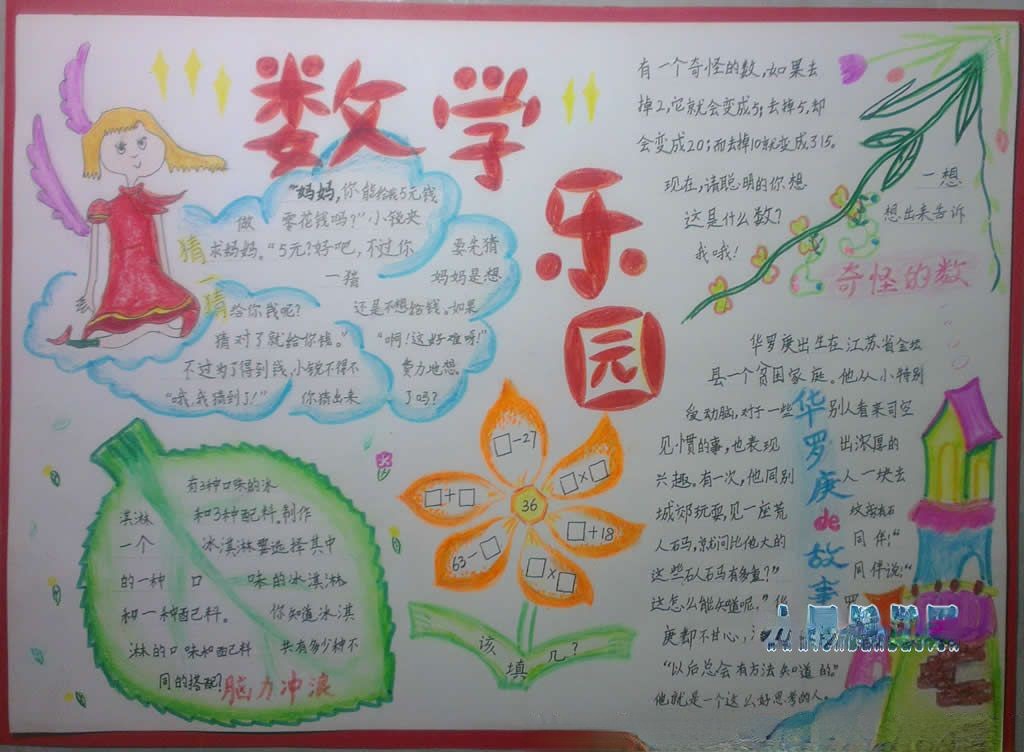 数学
乐
园
"妈妈,你能给我5元钱
做 零花钱吗?"小锐来
求妈妈。"5元?好吧,不过你 要先猜
一猜 妈妈是想
给你钱呢? 还是不想给钱。如果
猜对了就给你钱。" "啊!这好难呀!"
不过为了得到钱,小锐不得不 费力地想。
"哦,我猜到了!" 你猜出来 了吗?
猜一猜
有一个奇怪的数,如果去
掉2,它就会变成5;去掉5,却
会变成20;而去掉10就变成315。
现在,请聪明的你想 一想
这是什么数? 想出来告诉
我哦!
奇怪的数
有3种口味的冰
淇淋 和3种配料。制作
一个 冰淇淋要选择其中
的一种 口 味的冰淇淋
和一种配料。 你知道冰淇
淋的口味和配料 共有多少种不
同的搭配?
脑力冲浪
□-27
□+□
□×□
36
□+18
63-□
□×□
该填几?
华罗庚出生在江苏省金坛
县一个贫困家庭。他从小特别
爱动脑,对于一些 别人看来司空
见惯的事,也表现 出浓厚的
兴趣。有一次,他同别 人一块去
城郊玩耍,见一座荒 坟旁有石
人石马,就问比他大的 同伴:"
这些石人石马有多重?" 同伴说:"
这怎么能知道呢,"华 罗
庚却不甘心,
"以后总会有方法知道的。"
他就是一个这么好思考的人。
华罗庚de故事